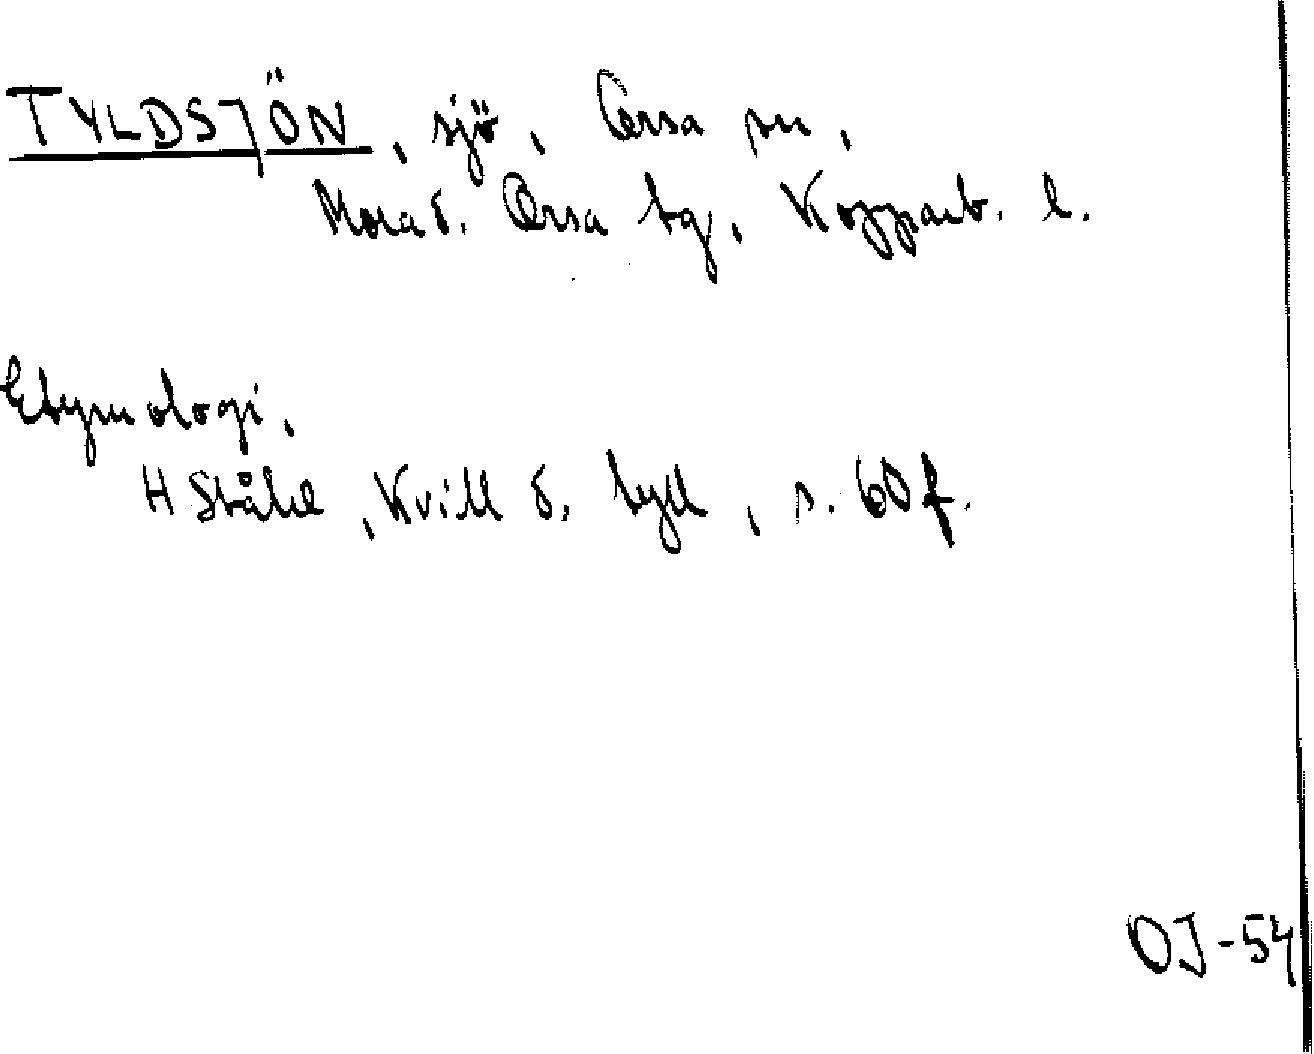 TYLDSJÖN, sjö, Orsa sn,
Mora o. Orsa tg, Kopparb. l.
Etymologi.
H Ståhl, Kvill o. tyll, s. 60 f.
OJ-54